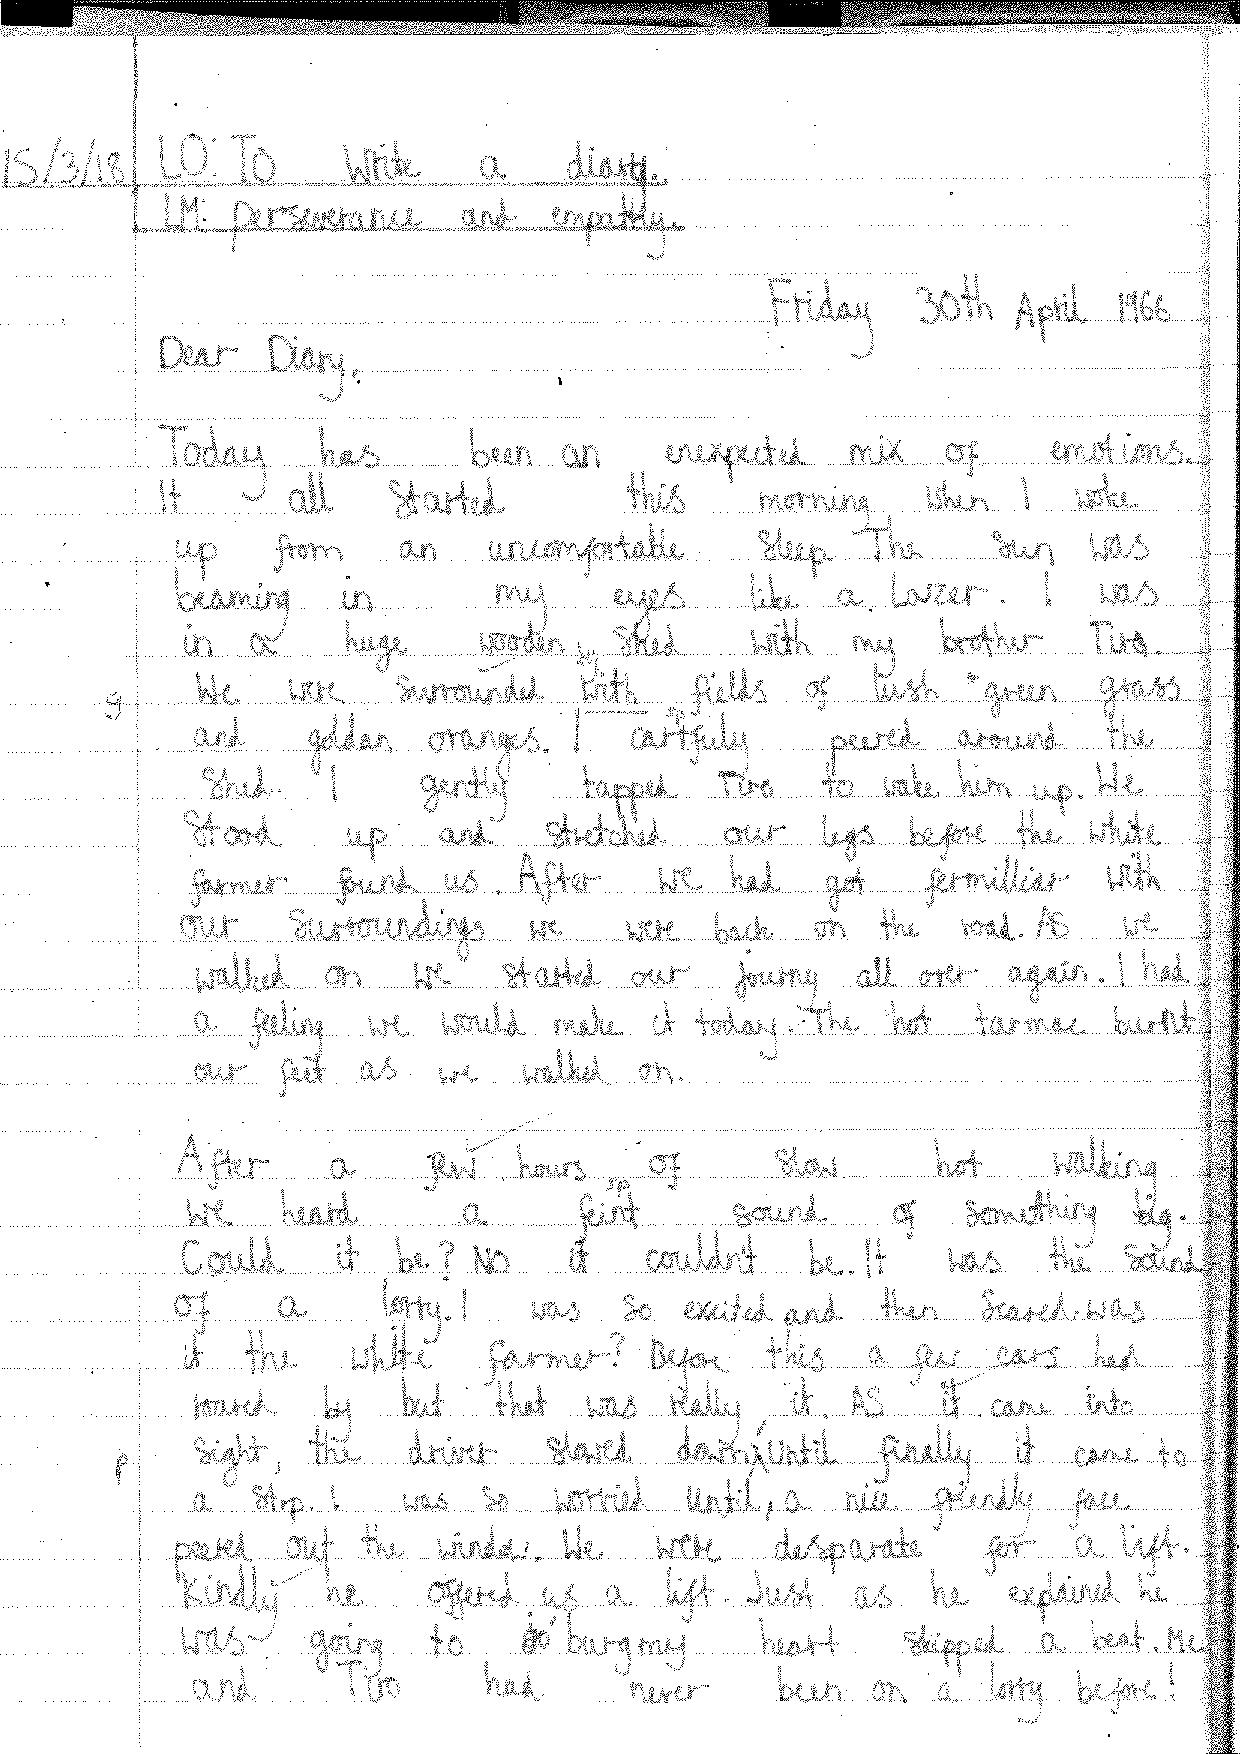 15/3/18 LO: To write a diary.
LM: perseverance and empathy.
Friday 30th April 1966
Dear Diary,
Today has been an unexpected mix of emotions.
It all started this morning when I woke
up from an uncomfortable sleep The sun was
beaming in my eyes like a lazer. I was
in a huge wooden shed with my brother Tiro.
sp
g We were surrounded with fields of lush green grass
sp
and golden oranges. I carffuly peered around the
shed. I gently tapped Tiro to wake him up. We
stood up and stretched our legs before the white
farmer found us. After we had got fermilliar with
our surroundings we were back on the road. As we
walked on we started our journy all over again. I had
a feeling we would make it today. The hot tarmac burnt
our feet as we walked on.
After a few hours of slow hot walking
sp
we heard a feint sound of something big.
Could it be? No it couldn't be. It was the sound
of a lorry. I was so excited and then scared. was
it the white farmer? Before this a few cars had
roared by but that was really it. As it came into
p sight, the driver slowed down, until finally it came to
a stop. I was so worried until, a nice friendly face
peered out the window. We were desparate for a lift.
Kindly he offered us a lift. Just as he explained he
was going to jo'burg my heart skipped a beat. Me
and Tiro had never been on a lorry before!